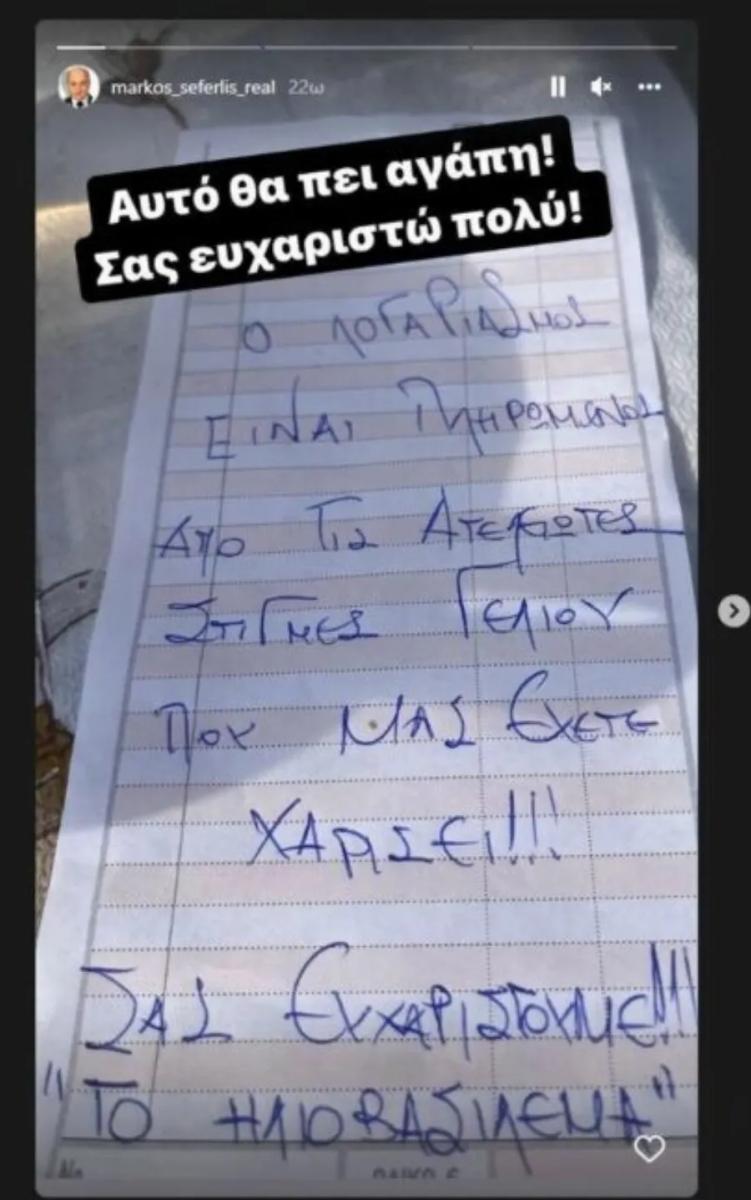 markos_seferlis_real 22ω
Αυτό θα πει αγάπη!
Σας ευχαριστώ πολύ!
Ο ΛΟΓΑΡΙΑΣΜΟΣ
ΕΙΝΑΙ ΠΛΗΡΩΜΕΝΟΣ
ΑΠΟ ΤΙΣ ΑΤΕΛΕΙΩΤΕΣ
ΣΤΙΓΜΕΣ ΓΕΛΙΟΥ
ΠΟΥ ΜΑΣ ΕΧΕΤΕ
ΧΑΡΙΣΕΙ!!!
ΣΑΣ ΕΥΧΑΡΙΣΤΟΥΜΕ!!!
"ΤΟ ΗΛΙΟΒΑΣΙΛΕΜΑ"